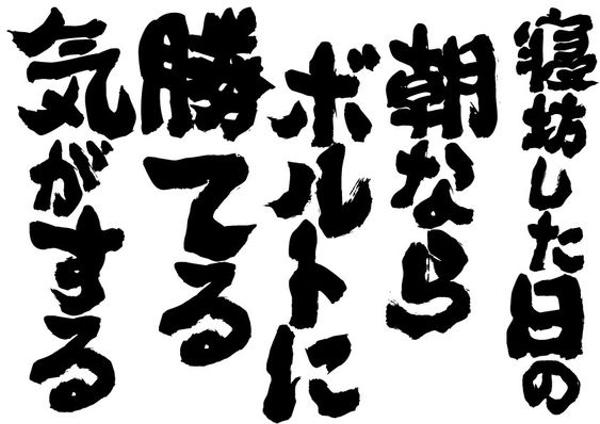 寝坊した日の
朝なら
ボルトに
勝てる
気がする